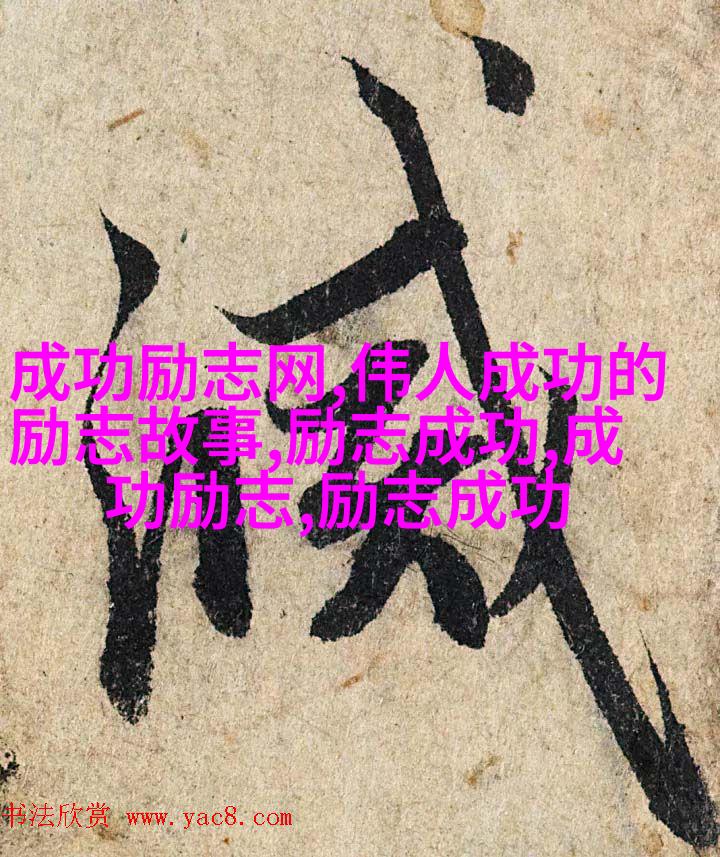 成功励志网,伟人成功的
励志故事,励志成功,成
功励志,励志成功
书法欣赏 www.yac8.com